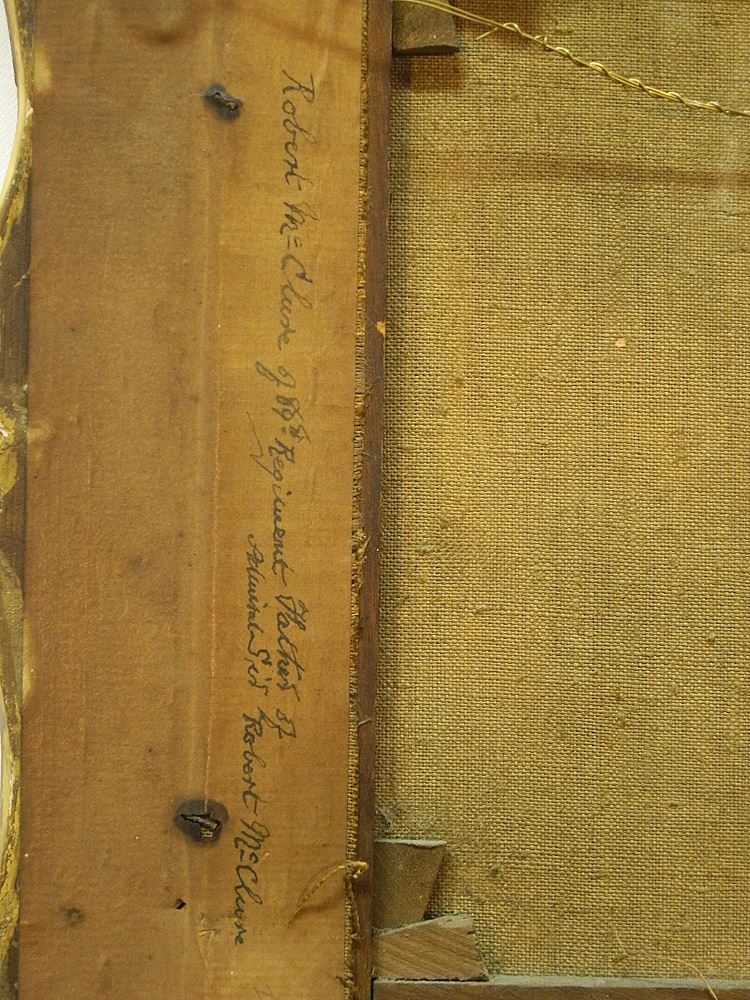 Robert Mc=Clure of 89th= Regiment Father of
Admiral Sir Robert Mc=Clure